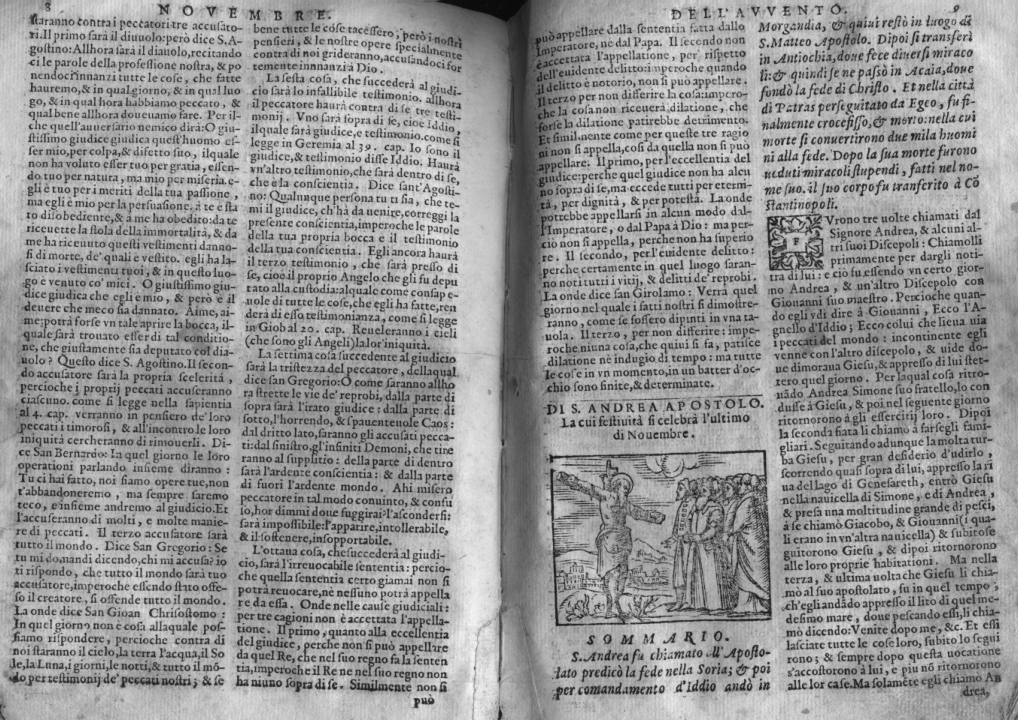 8
NOVEMBRE.
staranno contra i peccatori tre accusato-
ri. Il primo sarà il diauolo: però dice S. A-
gostino: Allhora sarà il diauolo, recitando
ci le parole della professione nostra, & po
nendoci innanzi tutte le cose, che fatte
hauremo, & in qual giorno, & in qual luo
go, & in qual hora habbiamo peccato, &
qual bene allhora doueuamo fare. Per il-
che quell'auuersario nemico dirà: O giu
stissimo giudice giudica quest'huomo es-
ser mio, per colpa, & difetto suo, ilquale
non ha voluto esser tuo per gratia, essen-
do tuo per natura, ma mio per miseria. e-
gli è tuo per i meriti della tua passione,
ma egli è mio per la persuasione. à te è sta
to disobediente, & à me ha obedito: da te
riceuette la stola della immortalità, & da
me ha riceuuto questi vestimenti danno-
si di morte, de' quali è vestito. egli ha la-
sciato i vestimenti tuoi, & in questo luo-
go è venuto co' mici. O giustissimo giu-
dice giudica che egli è mio, & però è il
deuere che meco sia dannato. Aime, ai-
me: potrà forse vn tale aprire la bocca, il-
quale sarà trouato esser di tal conditio-
ne, che giustamente sia deputato col dia-
uolo? Questo dice S. Agostino. Il secon-
do accusatore sarà la propria scelerità,
percioche i proprij peccati accuseranno
ciascuno. come si legge nella sapientia
al 4. cap. verranno in pensiero de' loro
peccati i timorosi, & all'incontro le loro
iniquità cercheranno di rimouerli. Di-
ce San Bernardo: In quel giorno le loro
operationi parlando insieme diranno:
Tu ci hai fatto, noi siamo opere tue, non
t'abbandoneremo, ma sempre saremo
teco, e insieme andremo al giudicio. Et
l'accuseranno di molti, e molte manie-
re di peccati. Il terzo accusatore sarà
tutto il mondo. Dice San Gregorio: Se
tu mi domandi dicendo, chi mi accusa? io
ti rispondo, che tutto il mondo sarà tuo
accusatore, imperoche essendo stato offe-
so il creatore, si offende tutto il mondo.
La onde dice San Gioan Chrisostomo:
In quel giorno non è cosa allaquale pos-
siamo rispondere, percioche contra di
noi staranno il cielo, la terra l'acqua, il So
le, la Luna, i giorni, le notti, & tutto il mō-
do per testimonij de' peccati nostri; & se
bene tutte le cose tacessero, però i nostri
pensieri, & le nostre opere specialmente
contra di noi grideranno, accusandoci for
temente innnanzi à Dio.
La sesta cosa, che succederà al giudi-
cio sarà lo infallibile testimonio. allhora
il peccatore haurà contra di se tre testi-
monij. Vno sarà sopra di se, cioè Iddio,
ilquale sarà giudice, e testimonio. come si
legge in Geremia al 39. cap. Io sono il
giudice, & testimonio disse Iddio. Haurà
vn'altro testimonio, che sarà dentro di se,
che è la conscientia. Dice sant'Agosti-
no: Qualunque persona tu ti sia, che te-
mi il giudice, ch'hà da venire, correggi la
presente conscientia, imperoche le parole
della tua propria bocca e il testimonio
della tua conscientia. Egli ancora haurà
il terzo testimonio, che sarà presso di
se, cioè il proprio Angelo che gli fu depu
tato alla custodia: alquale come consap e-
uole di tutte le cose, che egli ha fatte, ren
derà di esso testimonianza, come si legge
in Giob al 20. cap. Reueleranno i cieli
(che sono gli Angeli) la lor'iniquità.
La settima cosa succedente al giudicio
sarà la tristezza del peccatore, dellaqual
dice san Gregorio: O come saranno allho
ra strette le vie de' reprobi, dalla parte di
sopra sarà l'irato giudice: dalla parte di
sotto, l'horrendo, & spauenteuole Caos:
dal dritto lato, saranno gli accusati pecca-
ti: dal sinistro, gl'infiniti Demoni, che tire
ranno al supplitio: della parte di dentro
sarà l'ardente conscientia: & dalla parte
di fuori l'ardente mondo. Ahi misero
peccatore in tal modo conuinto, & confu
so, hor dimmi doue fuggirai? l'ascondersi
sarà impossibile: l'apparire, intollerabile,
& il sostenere, insopportabile.
L'ottaua cosa, che succederà al giudi-
cio, sarà l'irreuocabile sententia: percio-
che quella sententia certo giamai non si
potrà reuocare, nè nessuno potrà appella
re da essa. Onde nelle cause giudiciali:
per tre cagioni non è accettata l'appella-
tione. Il primo, quanto alla eccellentia
del giudice, perche non si può appellare
da quel Re, che nel suo regno fa la senten
tia, imperoche il Re ne nel suo regno non
ha niuno sopra di se. Similmente non si
può
DELL'AVVENTO.
9
può appellare dalla sententia fatta dallo
Imperatore, ne dal Papa. Il secondo non
è accettata l'appellatione, per rispetto
dell'euidente delitto: imperoche quando
il delitto è notorio, non si può appellare.
Il terzo per non differire la cosa: impero-
che la cosa non riceuerà dilatione, che
forse la dilatione patirebbe detrimento.
Et simil.nente come per queste tre ragio
ni non si appella, così da quella non si può
appellare. Il primo, per l'eccellentia del
giudice: perche quel giudice non ha alcu
no sopra di se, ma eccede tutti per eterni-
tà, per dignità, & per potestà. La onde
potrebbe appellarsi in alcun modo dal-
l'Imperatore, o dal Papa à Dio: ma per-
ciò non si appella, perche non ha superio
re. Il secondo, per l'euidente delitto:
perche certamente in quel luogo saran-
no noti tutti i vitij, & delitti de' reprobi.
La onde dice san Girolamo: Verrà quel
giorno nel quale i fatti nostri si dimostre-
ranno, come se fossero dipinti in vna ta-
uola. Il terzo, per non differire: impe-
roche niuna cosa, che quiui si fa, patisce
dilatione nè indugio di tempo: ma tutte
le cose in vn momento, in un batter d'oc-
chio sono finite, & determinate.
DI S. ANDREA APOSTOLO.
La cui festiuità si celebra l'ultimo
di Nouembre.
SOMMARIO.
S. Andrea fu chiamato all'Aposto-
lato predicò la fede nella Soria; & poi
per comandamento d'Iddio andò in
Morgandia, & quiui restò in luogo di
S. Matteo Apostolo. Dipoi si transferì
in Antiochia, doue fece diuersi miraco
li: & quindi se ne passò in Acaia, doue
fondò la fede di Christo. Et nella città
di Patras perseguitato da Egeo, fu fi-
nalmente crocefisso, & morto: nella cui
morte si conuertirono due mila huomi
ni alla fede. Dopo la sua morte furono
ueduti miracoli stupendi, fatti nel no-
me suo. il suo corpo fu transferito à Cō
stantinopoli.
FVrono tre uolte chiamati dal
Signore Andrea, & alcuni al-
tri suoi Discepoli: Chiamolli
primamente per dargli noti-
tia di lui: e ciò fu essendo vn certo gior-
no Andrea, & un'altro Discepolo con
Giouanni suo maestro. Percioche quan-
do egli vdì dire à Giouanni, Ecco l'A-
gnello d'Iddio; Ecco colui che lieua uia
i peccati del mondo: incontinente egli
venne con l'altro discepolo, & uide do-
ue dimoraua Giesu, & appresso di lui stet-
tero quel giorno. Per laqual cosa ritro-
uādo Andrea Simone suo fratello, lo con
dusse à Giesu, & poi nel seguente giorno
ritornorono à gli essercitij loro. Dipoi
la seconda fiata li chiamò à farsegli fami-
gliari. Seguitando adunque la molta tur-
ba Giesu, per gran desiderio d'udirlo,
scorrendo quasi sopra di lui, appresso la ri
ua del lago di Genesareth, entrò Giesu
nella nauicella di Simone, e di Andrea,
& presa una moltitudine grande di pesci,
à se chiamò Giacobo, & Giouanni (i qua-
li erano in vn'altra nauicella) & subito se
guitorono Giesu, & dipoi ritornorono
alle loro proprie habitationi. Ma nella
terza, & ultima uolta che Giesu li chia-
mò al suo apostolato, fu in quel tempo,
ch'egli andādo appresso il lito di quel me-
desimo mare, doue pescando essi, li chia-
mò dicendo: Venite dopo me, &c. Et essi
lasciate tutte le cose loro, subito lo segui
rono; & sempre dopo questa uocatione
s'accostorono à lui, e piu nō ritornorono
alle lor case. Ma solamēte egli chiamo An
drea,